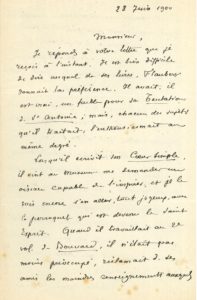 28 Juin 1900
Monsieur,
Je réponds à votre lettre que je
reçois à l'instant. Il est bien difficile
de dire auquel de ses livres, Flaubert
donnait la préférence. Il avait, il
est vrai, un faible pour sa Tentation
de St Antoine, mais, chacun des sujets
qu'il traitait, l'enthousiasmait au
même degré.
Lorsqu'il écrivit son Coeur Simple,
il vint au Museum me demander un
oiseau capable de l'inspirer, et je le
vois encore s'en aller, tout joyeux, avec
le perroquet qui est devenu le Saint
Esprit. Quand il travaillait au 2e
vol de Bouvard, il n'était pas
moins préoccupé, réclamant à ses
amis les moindres renseignements